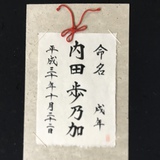 命名
戌年
内田歩乃加
平成三十年十月二十二日